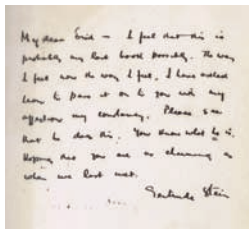 My dear Enid — I feel that this is
probably my last book possibly. The way
I feel now the way I feel. I have asked
to pass it on to you with my
affection my constancy. Please see
that he does this. You know what he is.
Hoping that you are as charming as
when we last met.
Gertrude Stein